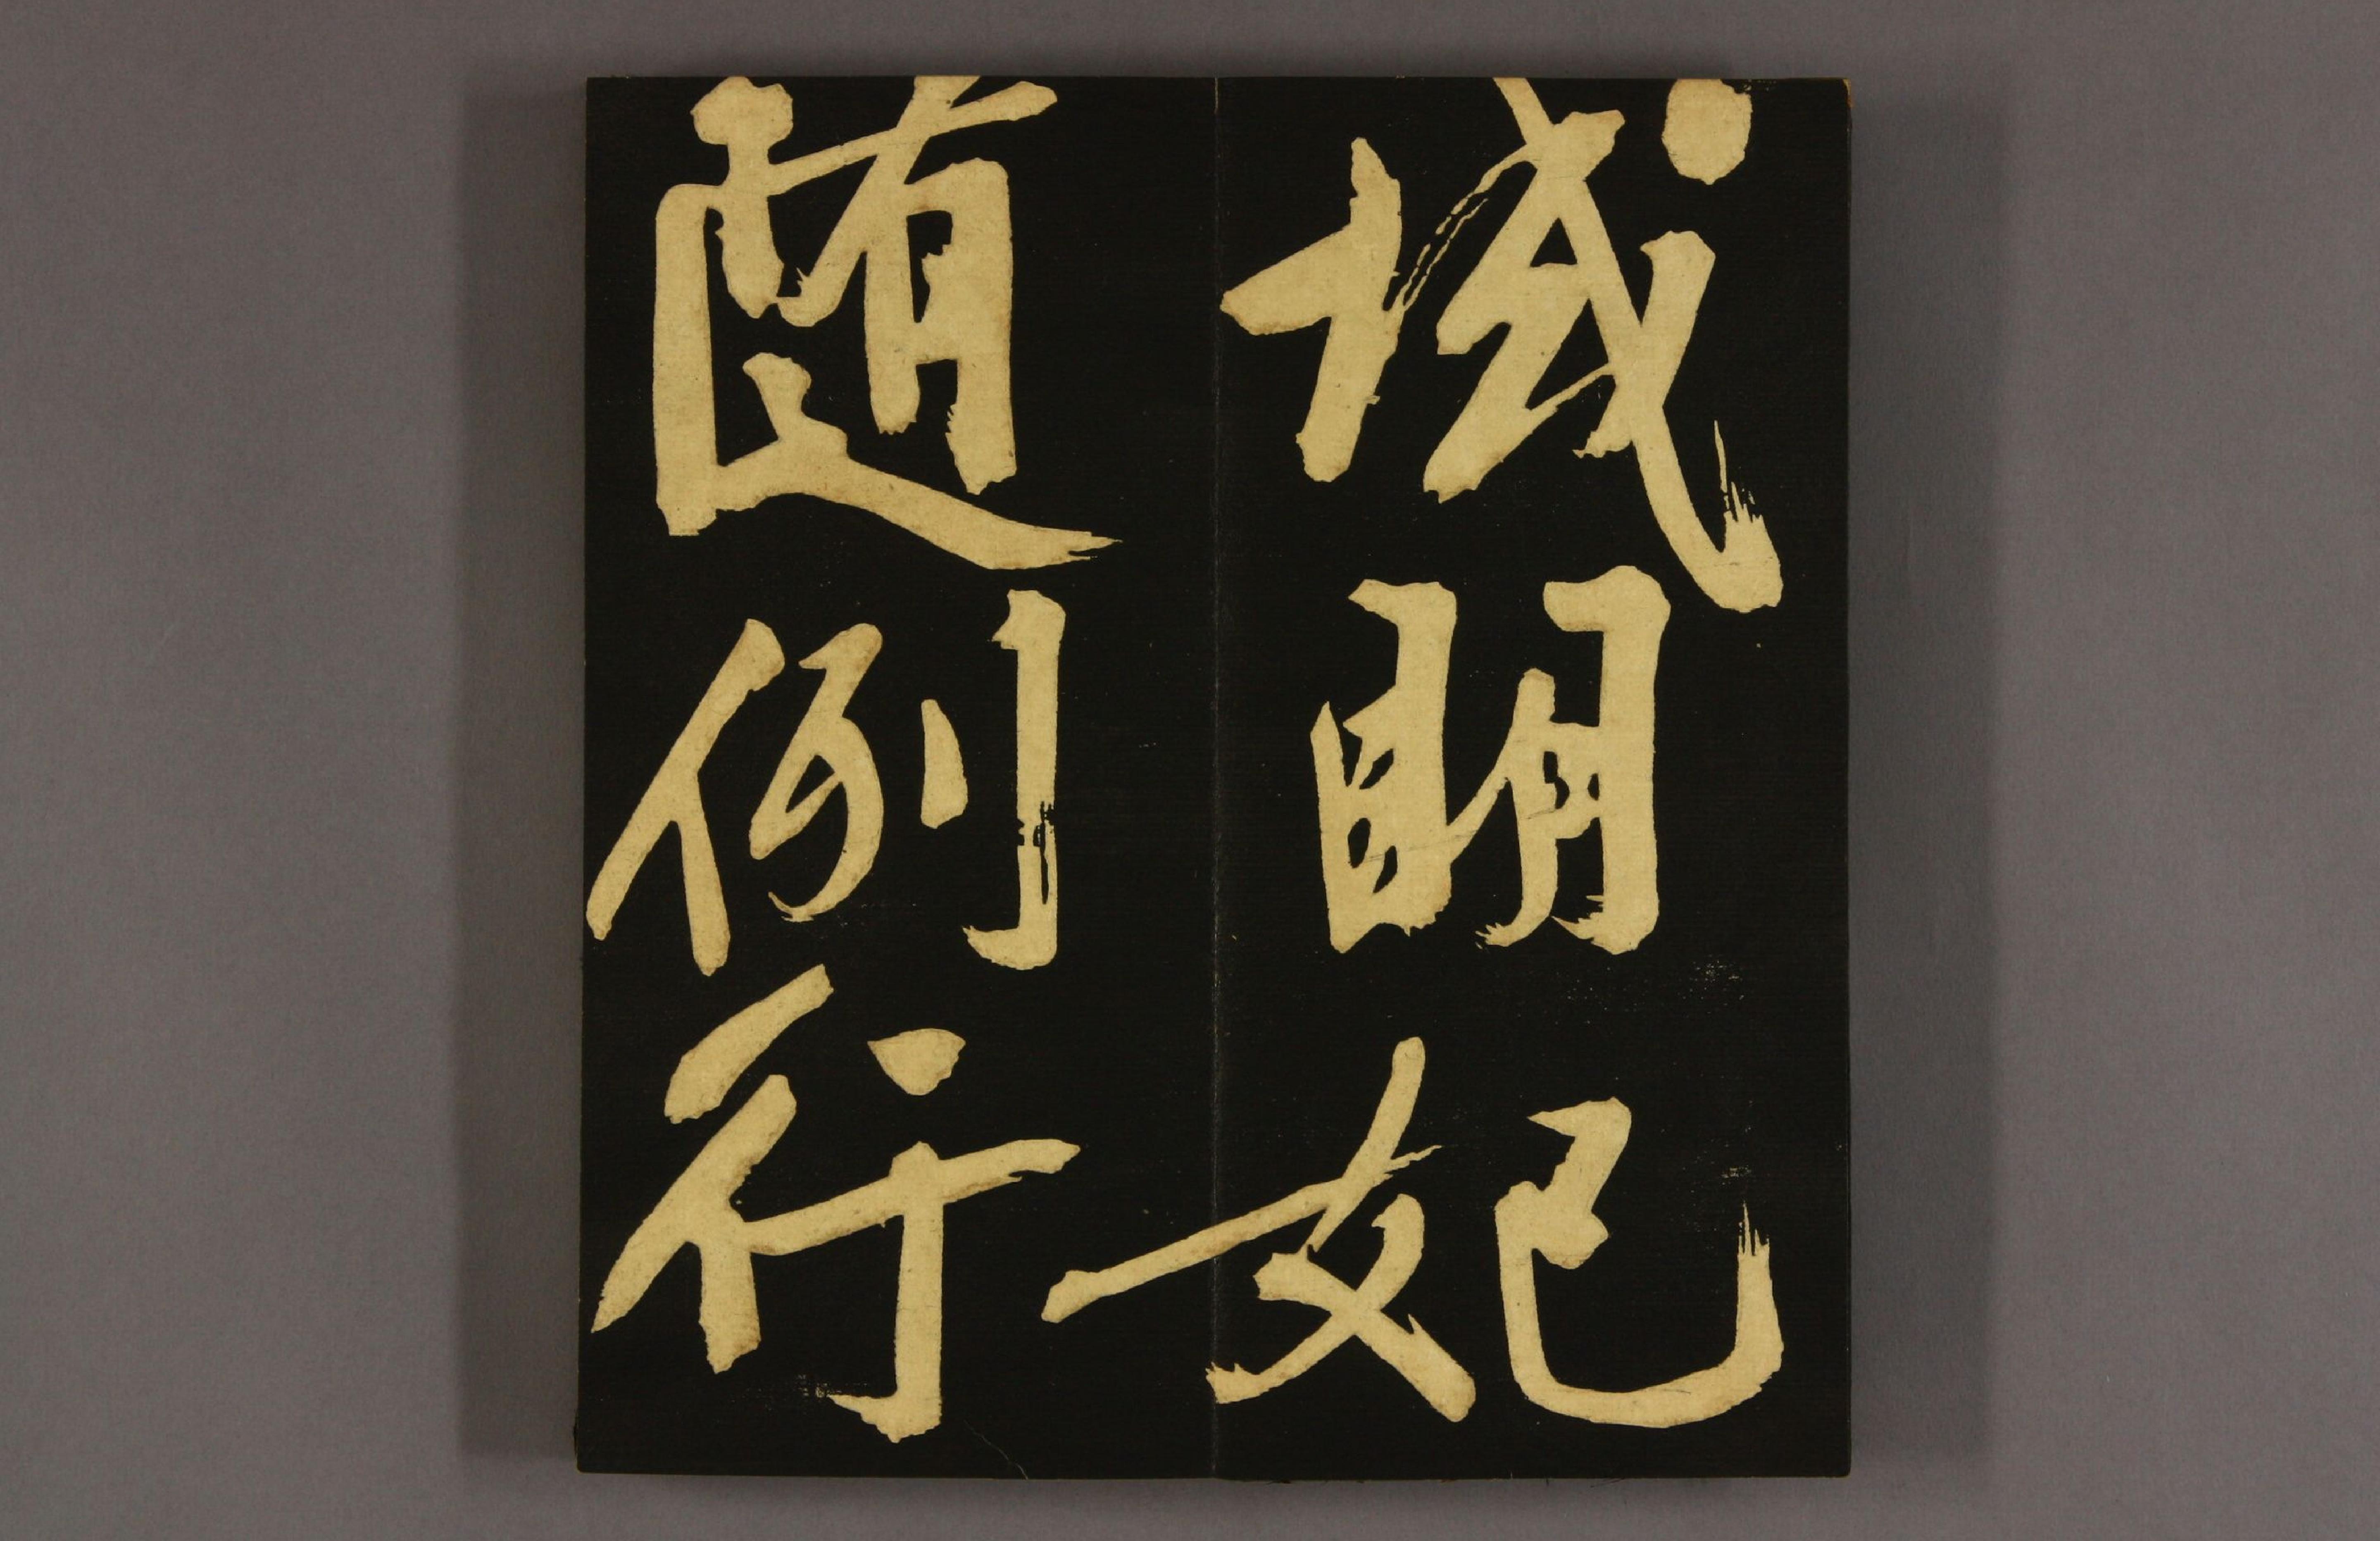 域明妃
随例行